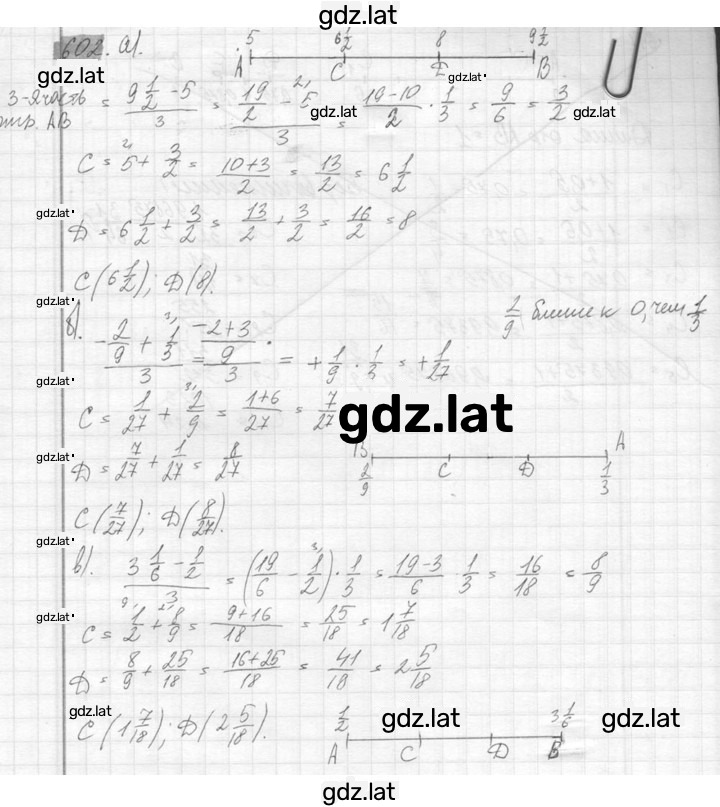 gdz.lat
602. а).
5 6 1/2 8 9 1/2
A C D B
gdz.lat
gdz.lat
3-я часть отр. AB = (9 1/2 - 5)/3 = (19/2 - 5)/3 = (19-10)/2 · 1/3 = 9/6 = 3/2
gdz.lat
C = 5 + 3/2 = (10+3)/2 = 13/2 = 6 1/2
gdz.lat
D = 6 1/2 + 3/2 = 13/2 + 3/2 = 16/2 = 8
gdz.lat
C(6 1/2); D(8).
gdz.lat
2/9 ближе к 0, чем 1/3
б). (-2/9 + 1/3)/3 = ((-2+3)/9)/3 = +1/9 · 1/3 = +1/27
gdz.lat
C = 1/27 + 2/9 = (1+6)/27 = 7/27
gdz.lat
gdz.lat
D = 7/27 + 1/27 = 8/27
B C D A
2/9 1/3
C(7/27); D(8/27).
gdz.lat
в). (3 1/6 - 1/2)/3 = (19/6 - 1/2) · 1/3 = (19-3)/6 · 1/3 = 16/18 = 8/9
gdz.lat
C = 1/2 + 8/9 = (9+16)/18 = 25/18 = 1 7/18
D = 8/9 + 25/18 = (16+25)/18 = 41/18 = 2 5/18
gdz.lat
C(1 7/18); D(2 5/18).
1/2 3 1/6
gdz.lat
gdz.lat
A C D B
gdz.lat